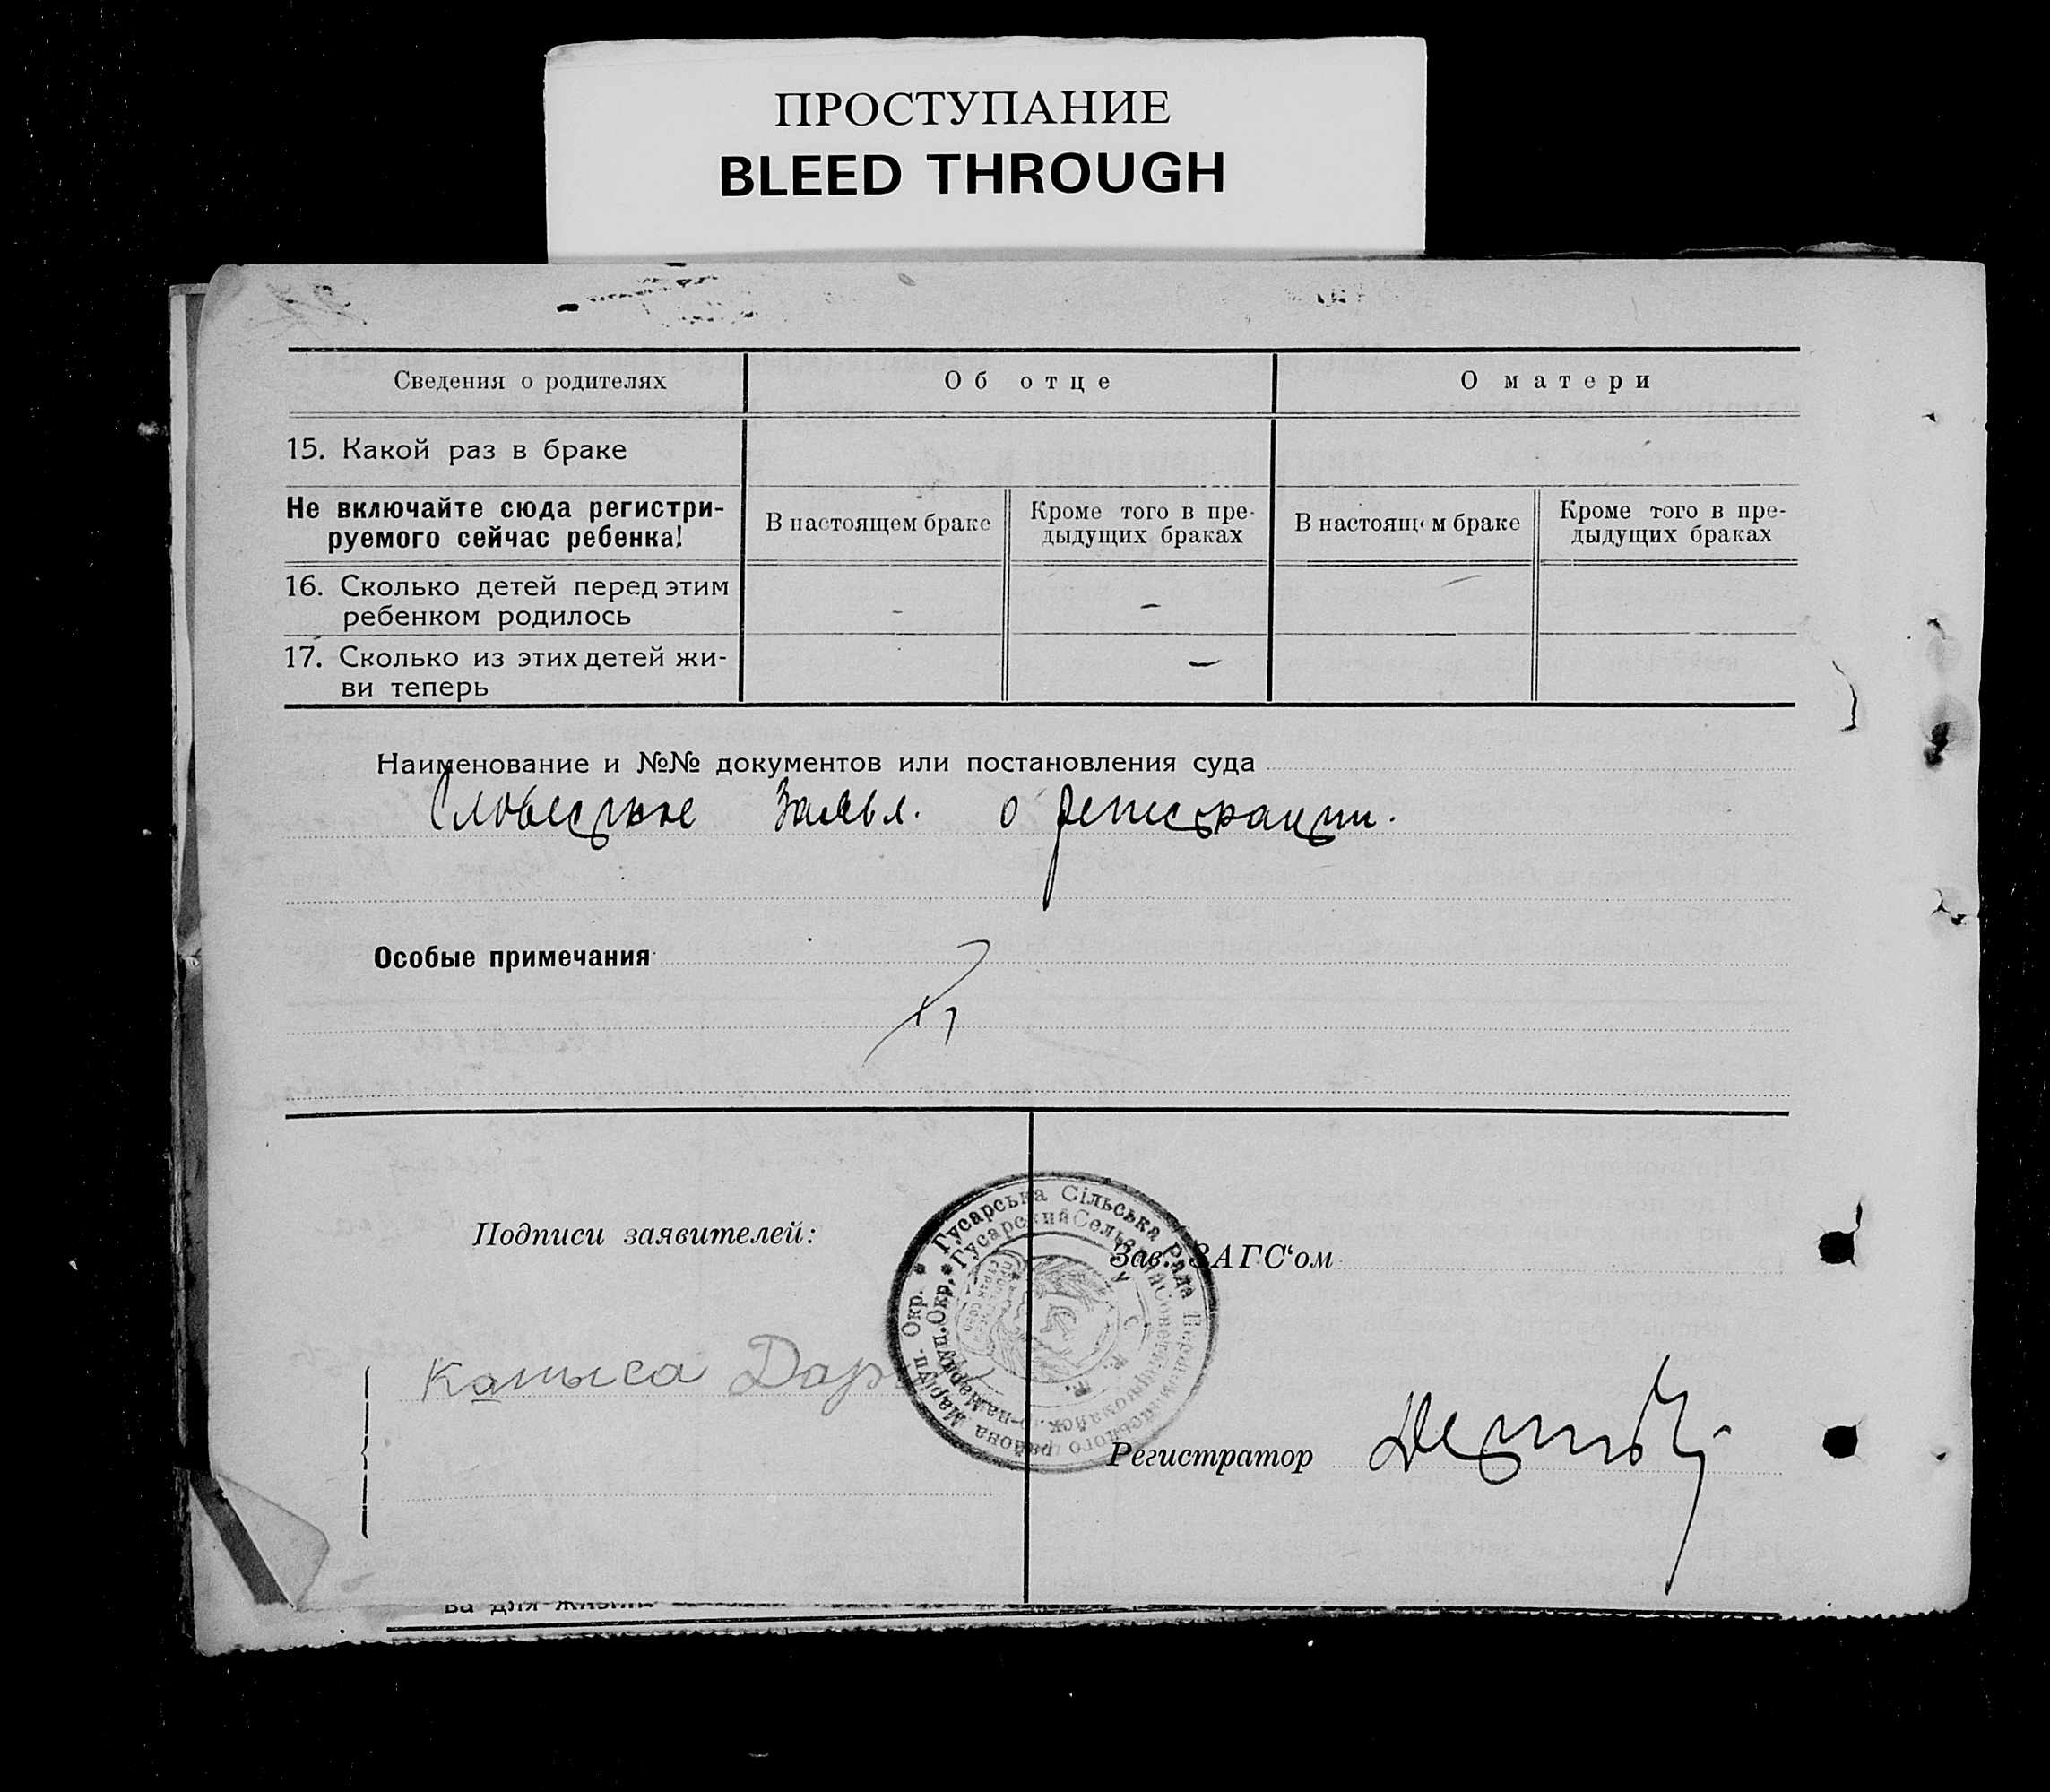 ПРОСТУПАНИЕ
BLEED THROUGH
Сведения о родителях
Об отце
О матери
15. Какой раз в браке
Не включайте сюда регистри-
руемого сейчас ребенка!
В настоящем браке
Кроме того в пре-
дыдущих браках
В настоящ м браке
Кроме того в пре-
дыдущих браках
16. Сколько детей перед этим
ребенком родилось
-
–
17. Сколько из этих детей жи-
ви теперь
–
Наименование и №№ документов или постановления суда
Словесное заявл. о регистрации.
Особые примечания
Подписи заявителей:
Гусарська Сільська Рада Маріуп. Окр.
Гусарский Сельский Совет р-на Мариуп. Окр.
У. С. Р. Р.
Зав. ЗАГС'ом
Дар
Регистратор
ва для жизни